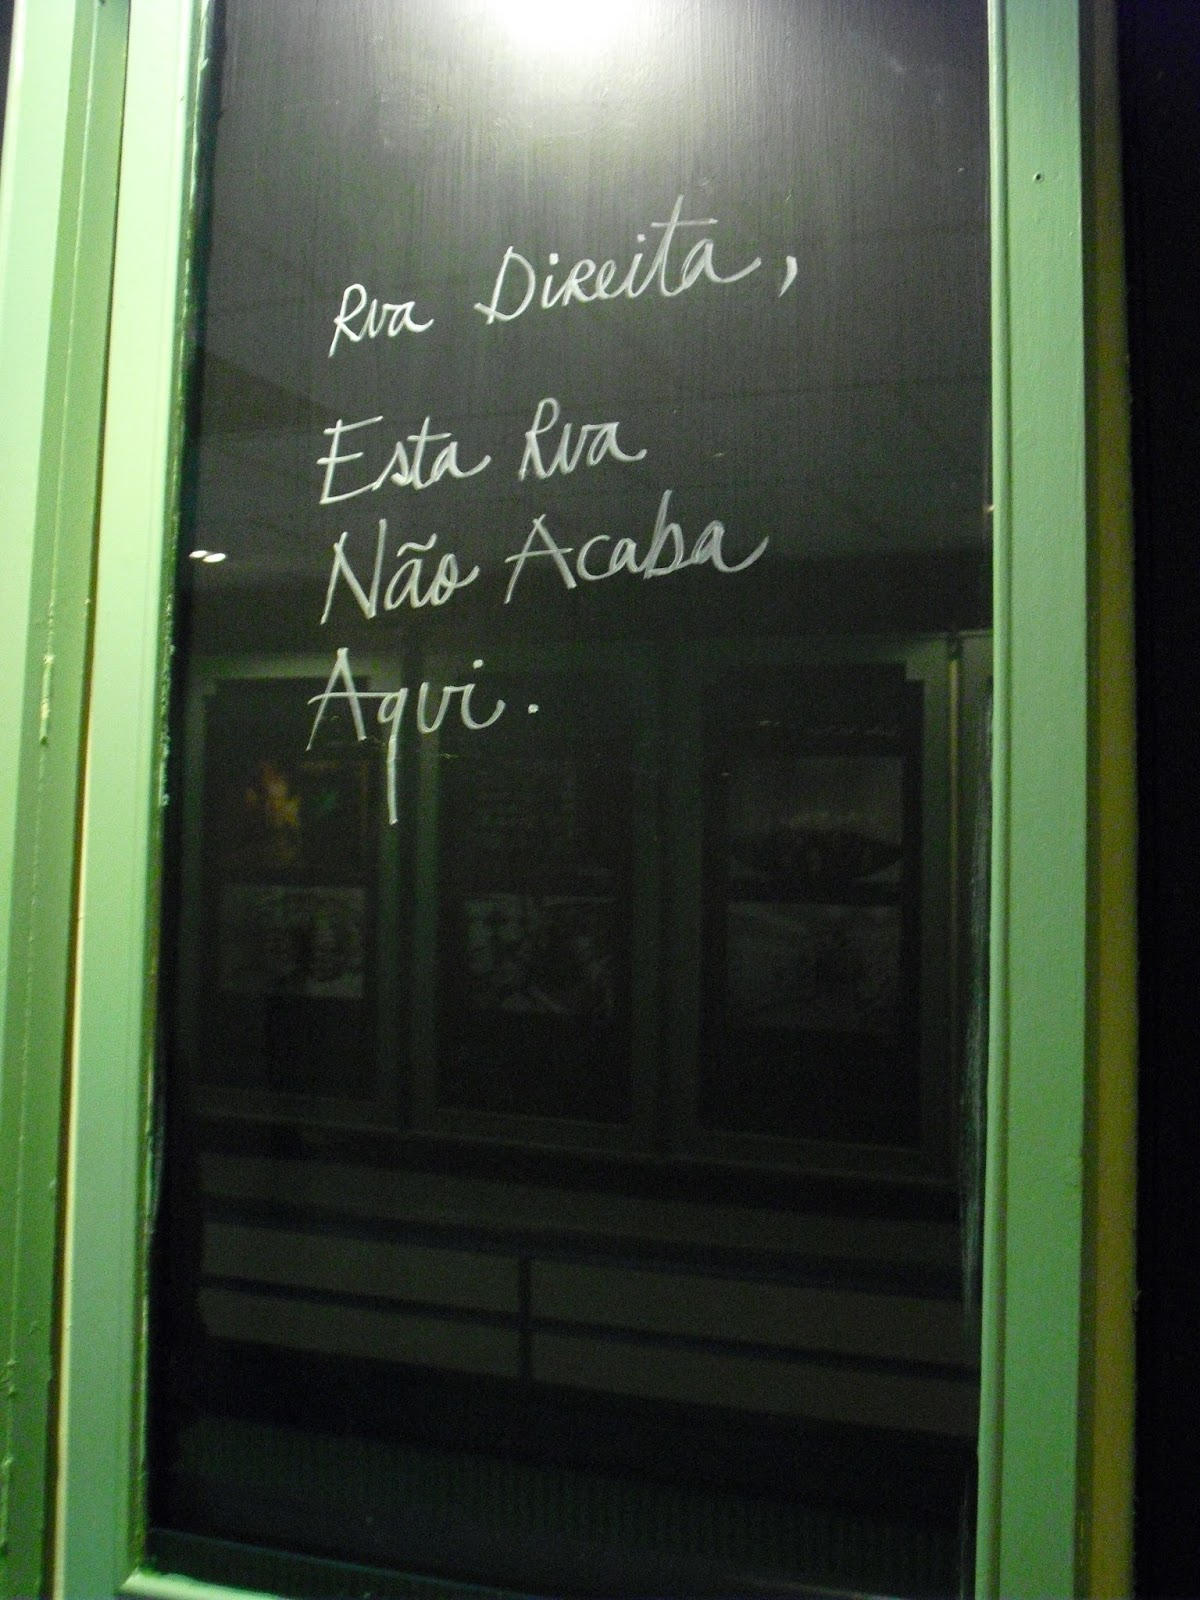 Rua Direita,
Esta Rua
Não Acaba
Aqui.